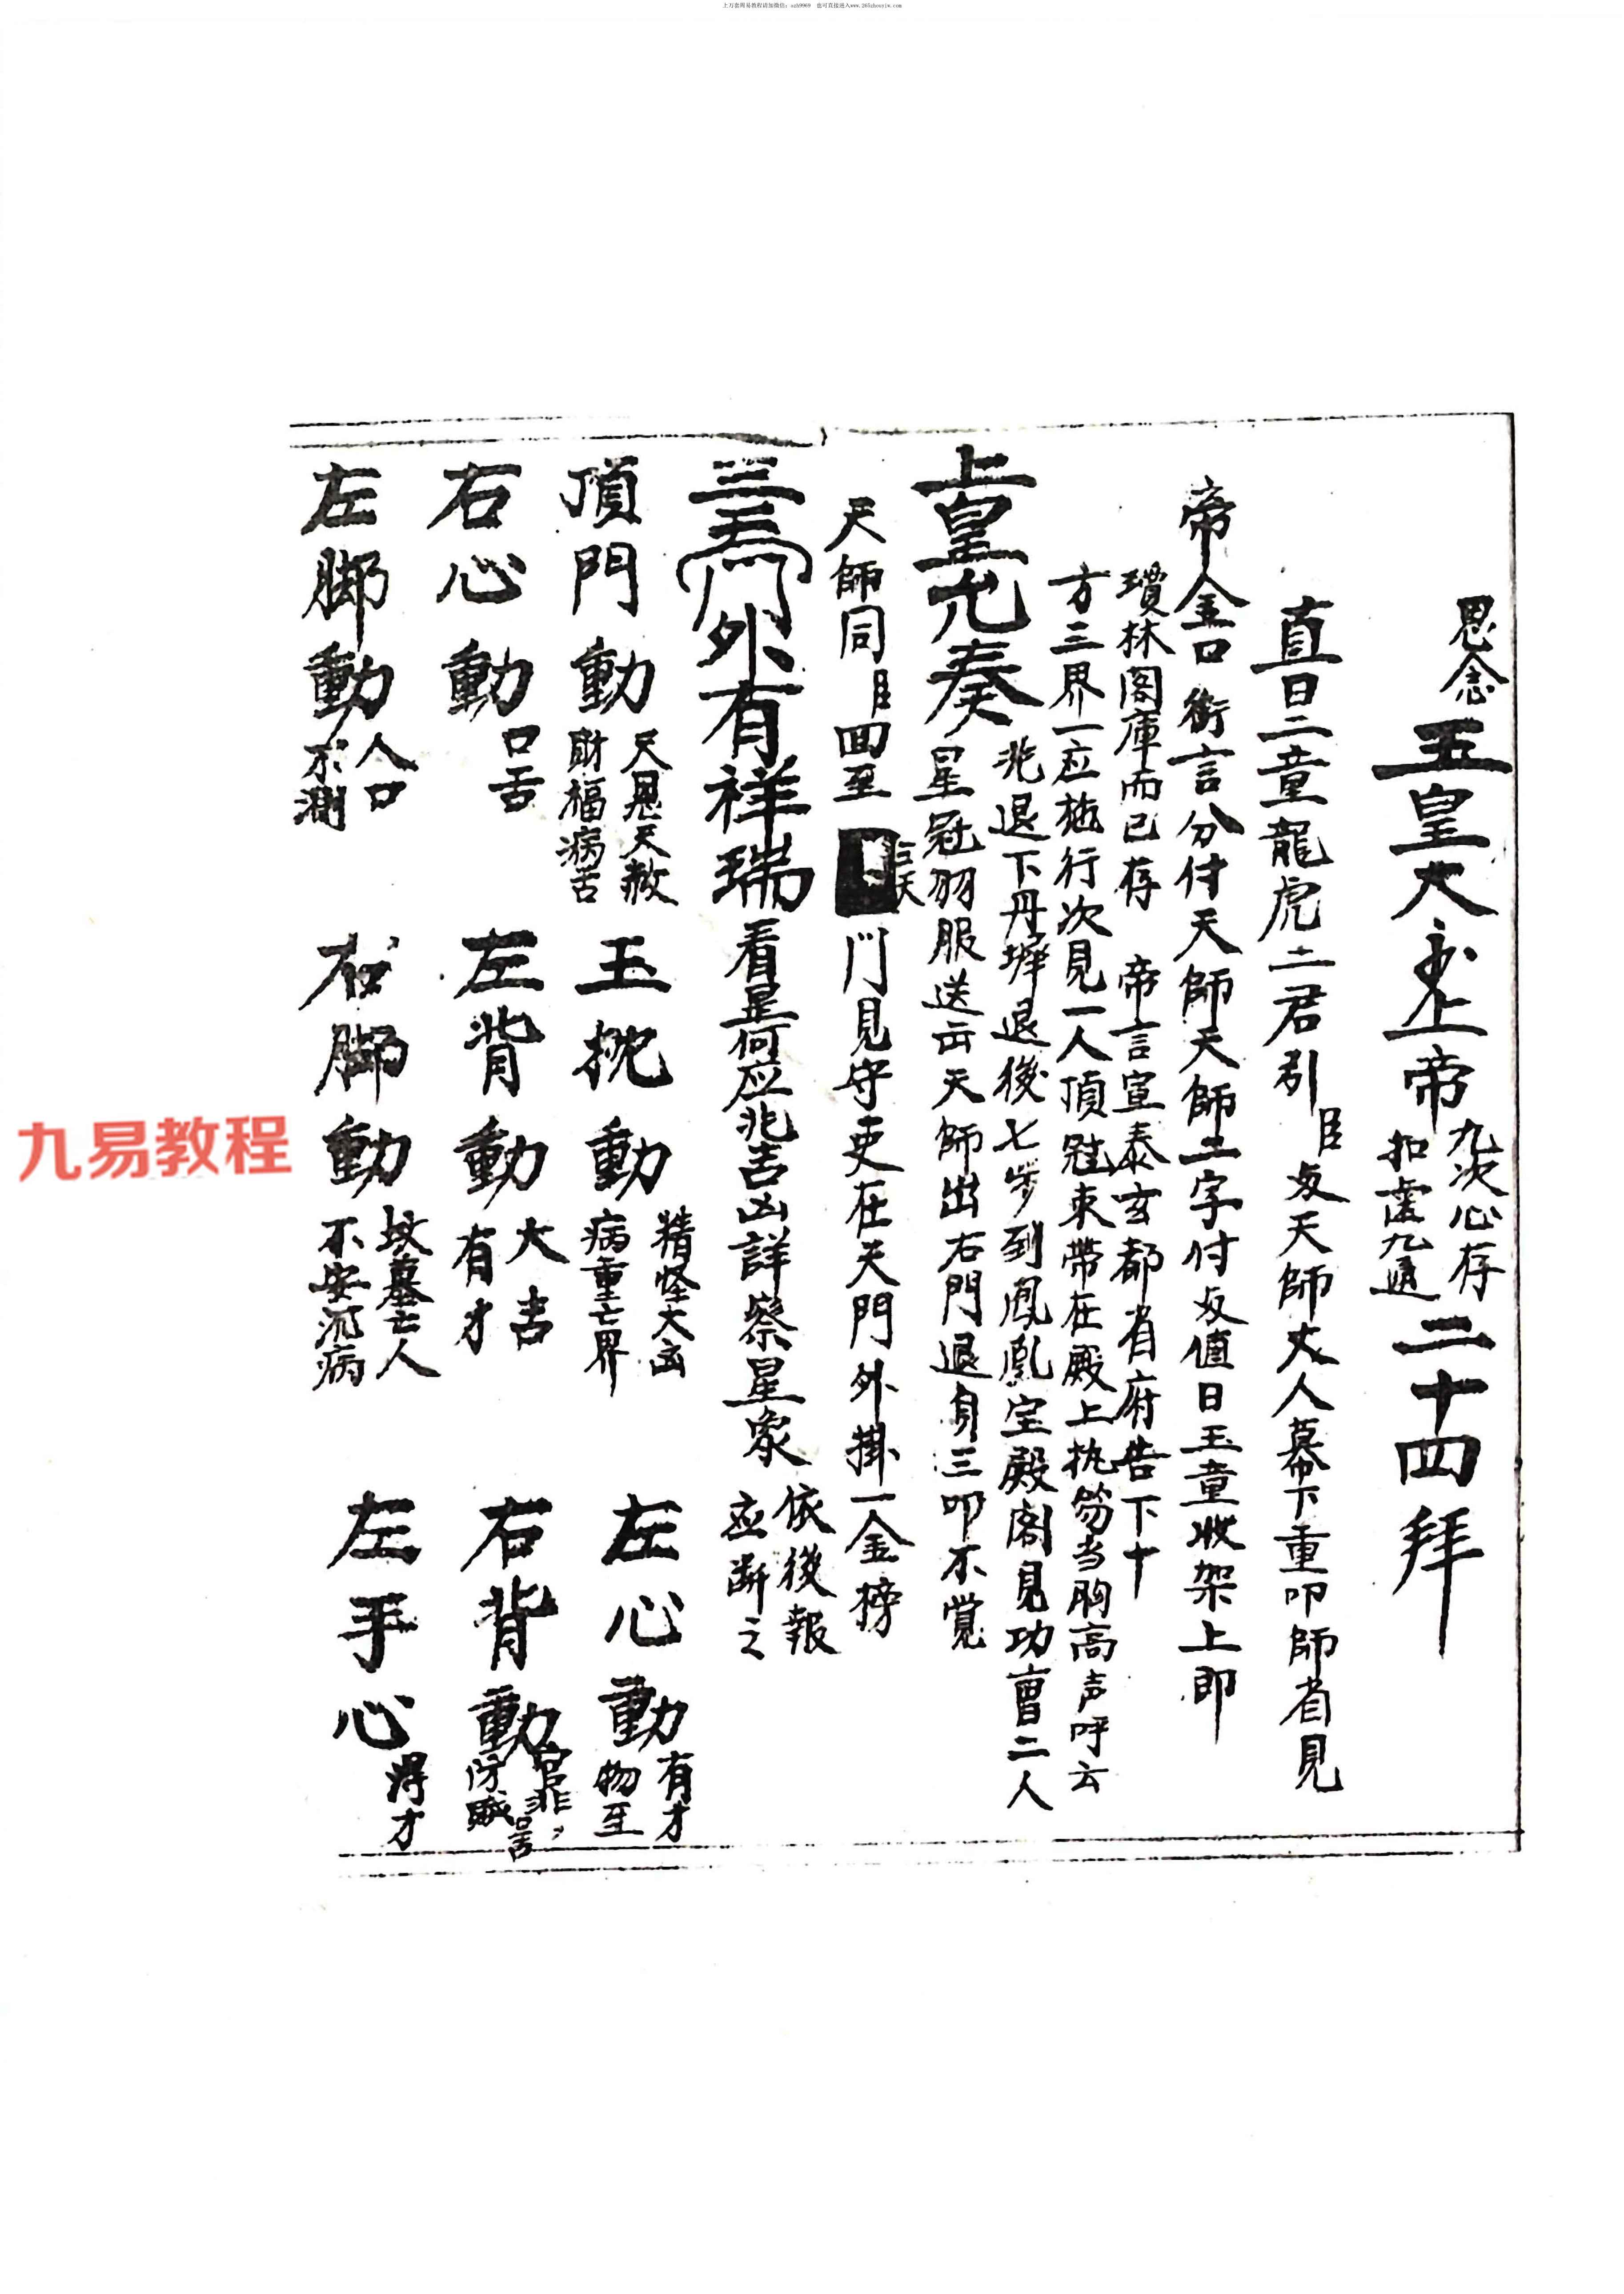 上万套周易教程请加微信：szh9969 也可直接进入www.265zhouyiw.com
思念玉皇大天上帝九次心存扣齒九通二十四拜
直日二童龍虎二君引臣及天師大人幕下重叩師省見
帝金口銜言分付天師天師二字付及值日玉童收架上即
瓊林閣庫而已存 帝言宣泰玄都省府告下十
方三界一应施行次見一人頂冠束帶在殿上执笏当胸高声呼云
兆退下丹墀退後七步到鳳凰宝殿閣見功曹二人
上皇允奏星冠羽服送出天師出右門退身三叩不覚
天師同臣回至三天門見守吏在天門外掛一金榜
門外有祥瑞看是何应兆吉凶詳察星象依後報应断之
頂門動天恩天赦財福病苦 玉枕動精怪大凶病重亡界 左心動有才物至
右心動口舌 左背動大吉有才 右背動官非口舌防賊
左脚動人口不測 右脚動坟墓亡人不安沉病 左手心得才
九易教程